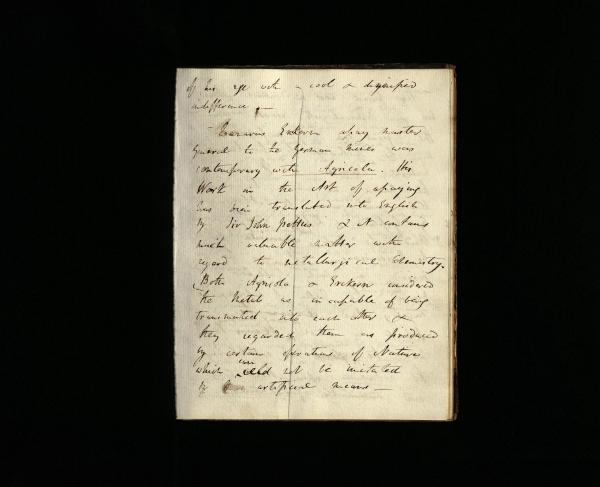 of his age with a cool & dignified
indifference. —
Lazarus Erckern assay master
general to the German mines was
contemporary with Agricola. His
Work on the Art of assaying
has been translated into English
by Sir John Pettus & it contains
much valuable matter with
regard to metallurgical chemistry.
Both Agricola & Erckern considered
the Metals as incapable of being
transmuted into each other &
they regarded them as produced
by certain operations of Nature
which could not be imitated
by artificial means —